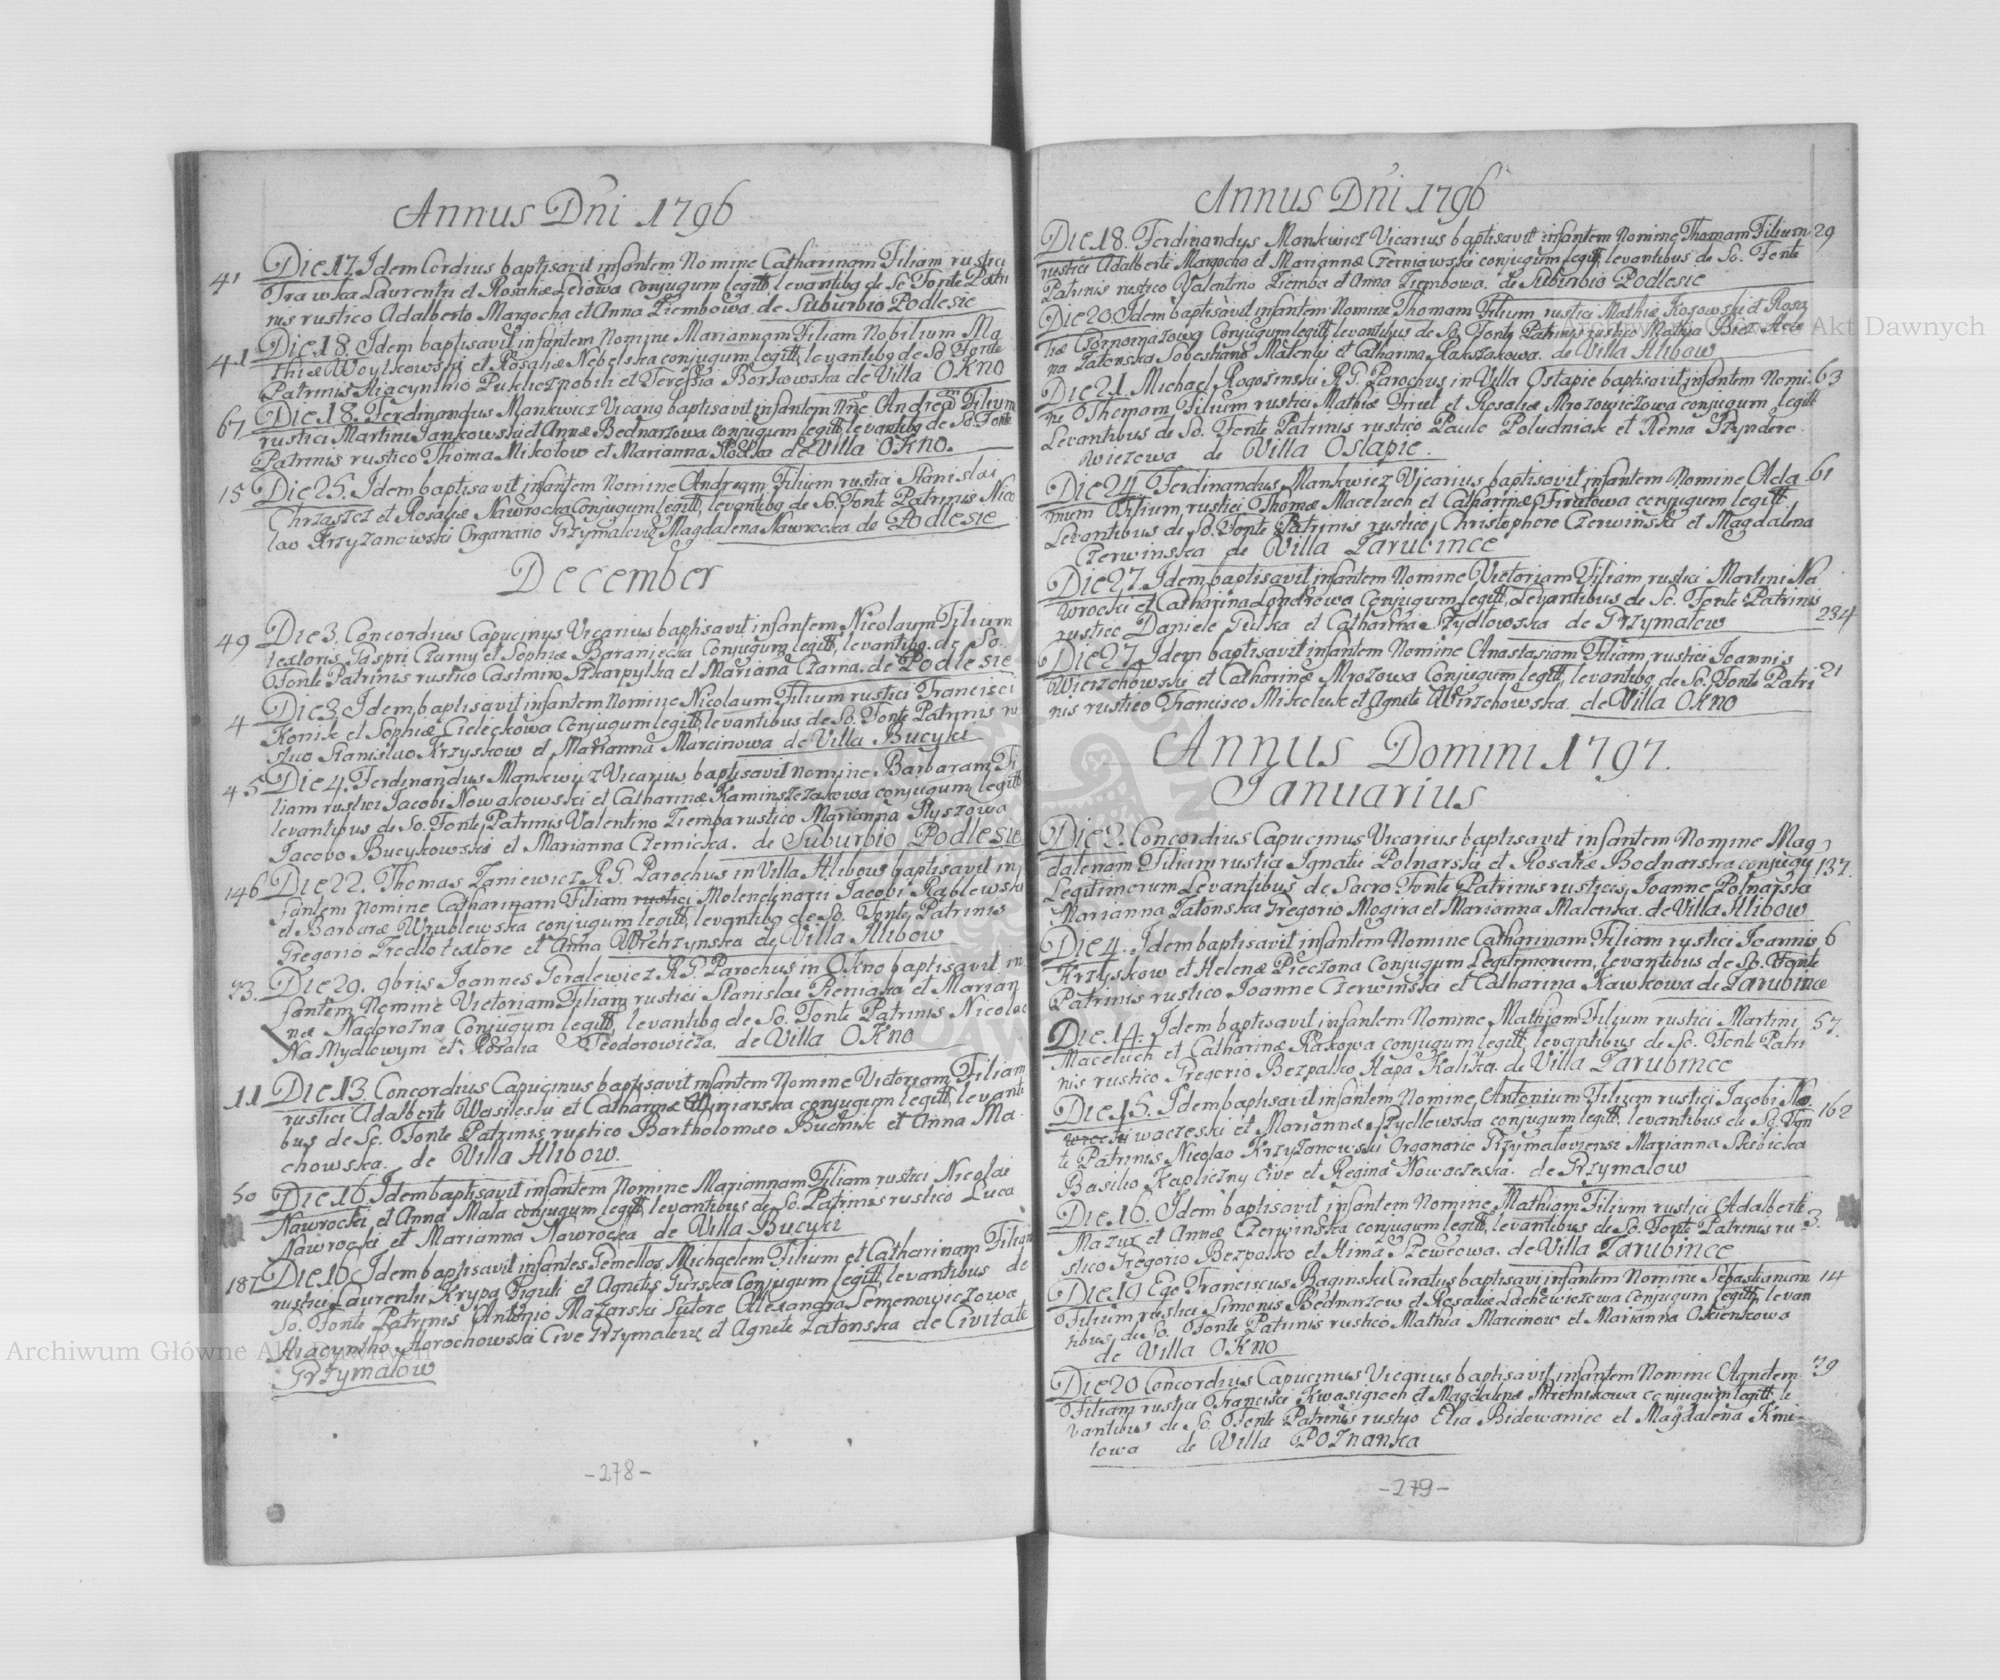 Annus Dni 1796
41 Die 17. Idem Cordius baptisavit infantem Nomine Catharinam Filiam rustici
Trawska Laurentii et Rosaliæ Leiowa conjugum legitt, levantibg de Sc Fonte Patri
nis rustico Adalberto Margocha et Anna Ziembowa. de Suburbio Podlesie
41 Die 18. Idem baptisavit infantem Nomine Mariannam Filiam Nobilium Ma
thiæ Woylkowski et Rosaliæ Nebelska conjugum legitt, levantibg de So Fonte
Patrinis Hiacynthio Nobili et Teressia Borkowska de Villa OKNO
67 Die 18. Ferdinandus Mankwicz Vicarig baptisavit infantem Nñe Andream Filium
rustici Martini Jankowski et Annæ Bednarzowa conjugum legitt, levantibg de So Fonte
Patrinis rustico Thoma Mikolow et Marianna de Villa OKNO.
15 Die 25. Idem baptisavit infantem Nomine Andream Filium rustici Stanislai
Chrząszcz et Rosaliæ Nawrocka Conjugum legitt, levantibg de So Fonte Patrinis Nico
lao Krzyżanowski Organario Magdalena Nawrocka de Podlesie
December
49 Die 3. Concordius Capucinus Vicarius baptisavit infantem Nicolaum Filium
textoris Gaspri Czarny et Sophiæ Baraniecka Conjugum legitt, levantibg. de So.
Fonte Patrinis rustico Casimiro Szkarpytka et Mariana Czarna. de Podlesie
4 Die 3. Idem baptisavit infantem Nomine Nicolaum Filium rustici Francisci
Konik et Sophiæ Cieleckowa Conjugum legitt, levantibus de So. Fonte Patrinis ru
stico Stanislao Krzyskow et Marianna Marcinowa de Villa Bucyki
45 Die 4. Ferdinandus Mankwicz Vicarius baptisavit nomine Barbaram Fi
liam rustici Jacobi Nowakowski et Catharinæ Kaminszczakowa conjugum legitt
levantibus de So. Fonte, Patrinis Valentino Ziemba rustico Marianna Ryszowa
Jacobo Bucykowski et Marianna Czernicka. de Suburbio Podlesie
146 Die 22. Thomas Zaniewicz R.G. Parochus in Villa Hlibow baptisavit in
fantem nomine Catharinam Filiam rustici Molendinarii Jacobi Rąblewski
et Barbaræ Wrublewska conjugum legitt, levantibg de So. Fonte, Patrinis
Gregorio textore et Anna de Villa Hlibow
23. Die 29. 9bris Joannes Geralewicz R.G. Parochus in OKno baptisavit in
fantem Nomine Victoriam Filiam rustici Stanislai Pieniaka et Marian
næ Nadorożna Conjugum legitt, levantibg de So. Fonte Patrinis Nicolao
Na Mydlowym et Rosalia Teodorowicza. de Villa OKNO
11 Die 13. Concordius Capucinus baptisavit infantem Nomine Victoriam Filiam
rustici Adalberti Wasileski et Catharinæ Winiarska conjugum legitt, levanti
bus de Sc. Fonte Patrinis rustico Bartholomæo Budnik et Anna Ma
chowska. de Villa Hlibow.
50 Die 16. Idem baptisavit infantem Nomine Mariannam Filiam rustici Nicolai
Nawrocki et Anna Mala conjugum legitt, levantibus de So. Patrinis rustico Luca
Nawrocki et Marianna Nawrocka de Villa Bucyki
187 Die 16. Idem baptisavit infantes Gemellos, Michaelem Filium et Catharinam Filiam
rustici Laurentii Krypa Piguli et Agnetis Gurska Conjugum legitt, levantibus de
So. Fonte Patrinis Antonio Mazarski Sutore Alexandra Semenowiczowa
Hiacyntho Horochowski Cive et Agnete Zatonska de Civitate
Grzymałow
-278-
Annus Dni 1796
Die 18. Ferdinandys Mankwicz Vicarius baptisavit infantem Nomine Thomam Filium 29
rustici Adalberti Margocha et Mariannæ Czerniawski conjugum legitt, levantibus de So. Fonte
Patrinis rustico Valentino Ziemba et Anna Ziembowa. de Suburbio Podlesie
Die 20. Idem baptisavit infantem Nomine Thomam Filium rustici Mathiæ Kosowski et Rosa
liæ Conjugum legitt, levantibus de So. Fonte Patrinis rustico Mathia Hele
na Zatonska Sebestiano Malenki et Catharina Rakszakowa. de Villa Hlibow
Die 21. Michael Rogosinski R.G. Parochus in Villa Ostapie baptisavit infantem Nomi- 63
ne Thomam Filium rustici Mathiæ et Rosaliæ Mrozowiczowa conjugum legitt
Levantibus de So. Fonte Patrinis rustico Paulo Poludniak et Xenia
wiczowa de Villa Ostapie.
Die 24. Ferdinandus Mankwicz Vicarius baptisavit infantem Nomine Ada 61
mum Filium rustici Thomæ Maceluch et Catharinæ Firutowa conjugum legitt.
Levantibus de So. Fonte Patrinis rustico Christophoro Czerwiński et Magdalena
Czerwinska de Villa Zarubince
Die 27. Idem baptisavit infantem Nomine Victoriam Filiam rustici Martini Na
wrocki et Catharina Conjugum legitt, Levantibus de Sc. Fonte Patrinis
rustico Daniele Gulka et Catharina Szydłowska de Grzymałow 234
Die 27. Idem baptisavit infantem Nomine Anastasiam Filiam rustici Joannis
Wierzchowski et Catharinæ Mrozowa Conjugum legitt, levantibg de So. Fonte Patri 21
nis rustico Francisco Mikoluk et Agnete Wirzchowska. de Villa OKNO
Annus Domini 1797.
Ianuarius
Die 2. Concordius Capucinus Vicarius baptisavit infantem Nomine Mag
dalenam Filiam rustici Ignatii Polnarski et Rosaliæ Bodnarska conjugũ 137.
Legitimorum Levantibus de Sacro Fonte Patrinis rusticis, Joanne Polnarska
Marianna Zatonska Gregorio Mogira et Marianna Malenka. de Villa Hlibow
Die 4. Idem baptisavit infantem Nomine Catharinam Filiam rustici Joannis 6
Krzyskow et Helenæ Pieczona Conjugum Legitimorum, levantibus de So. Fonte
Patrinis rustico Joanne Czerwiński et Catharina Kawkowa de Zarubince
Die 14. Idem baptisavit infantem Nomine Mathiam Filium rustici Martini 57.
Maceluch et Catharinæ Rakowa conjugum legitt, levantibus de Sc. Fonte Patri
nis rustico Gregorio Bezpalko Hapa Kaliska. de Villa Zarubince
Die 15. Idem baptisavit infantem Nomine Antonium Filium rustici Jacobi No
waczeski et Mariannæ Szydlowska conjugum legitt, levantibus de So. Fon 162
te Patrinis Nicolao Krzyżanowski Organario Grzymałoviensi Marianna Skibicka
Basilio Kapliczny Cive et Regina Nowaczeska. de Grzymalow
Die 16. Idem baptisavit infantem Nomine Mathiam Filium rustici Adalberti
Mazur et Annæ Czerwinska conjugum legitt, levantibus de So. Fonte Patrinis ru 3.
stico Gregorio Bezpalko et Hima Szewcowa. de Villa Zarubince
Die 19. Ego Franciscus Baginski Curatus baptisavi infantem Nomine Sebastianum 14
Filium rustici Simonis Bednarzow et Rosaliæ Lachowiczowa Conjugum legitt, levan
tibus de So. Fonte Patrinis rustico Mathia Marcinow et Marianna Okienkowa
de Villa OKNO
Die 20 Concordius Capucinus Vicarius baptisavit infantem Nomine Agnetem 39
Filiam rustici Francisci Kwasigroch et Magdalenæ Mielnikowa conjugum legitt. le
vantibus de So. Fonte Patrinis rustico Elia Bidowaniec et Magdalena Kmi-
towa de Villa Poznanka
-279-
Archiwum Główne Akt Dawnych
Archiwum Główne Akt Dawnych